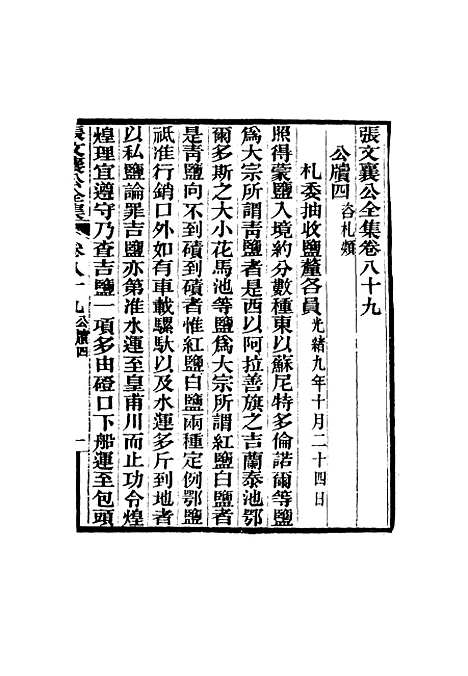 張文襄公全集卷八十九
公牘四 咨札類
札委抽收鹽釐各員光緒九年十月二十四日
照得蒙鹽入境約分數種東以蘇尼特多倫諾爾等鹽
爲大宗所謂青鹽者是西以阿拉善旗之吉蘭泰池鄂
爾多斯之大小花馬池等鹽爲大宗所謂紅鹽白鹽者
是青鹽向不到磧到磧者惟紅鹽白鹽兩種定例鄂鹽
祇准行銷口外如有車載騾馱以及水運多斤到地者
以私鹽論罪吉鹽亦第准水運至皇甫川而止功令煌
煌理宜遵守乃查吉鹽一項多由磴口下船運至包頭
張文襄公全集 卷八十九 公牘四 一